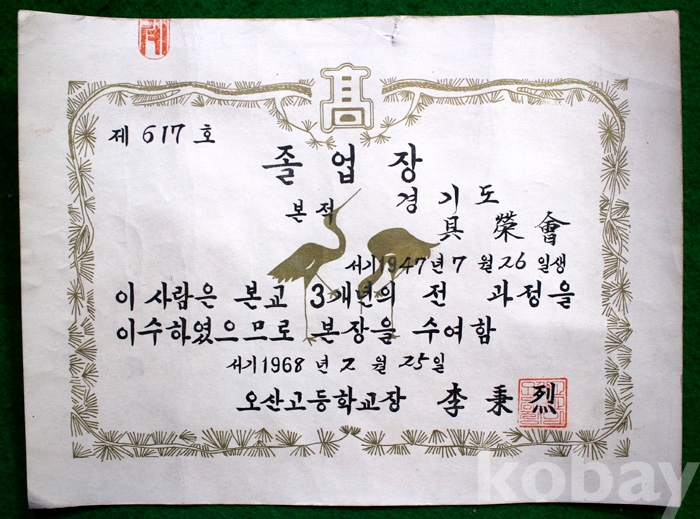 高
제 617 호
졸업장
본적 경기도
具榮會
서기1947년 7월 26일생
이 사람은 본교 3개년의 전 과정을
이수하였으므로 본장을 수여함
서기1968년 2월 25일
오산고등학교장 李秉烈
kobay